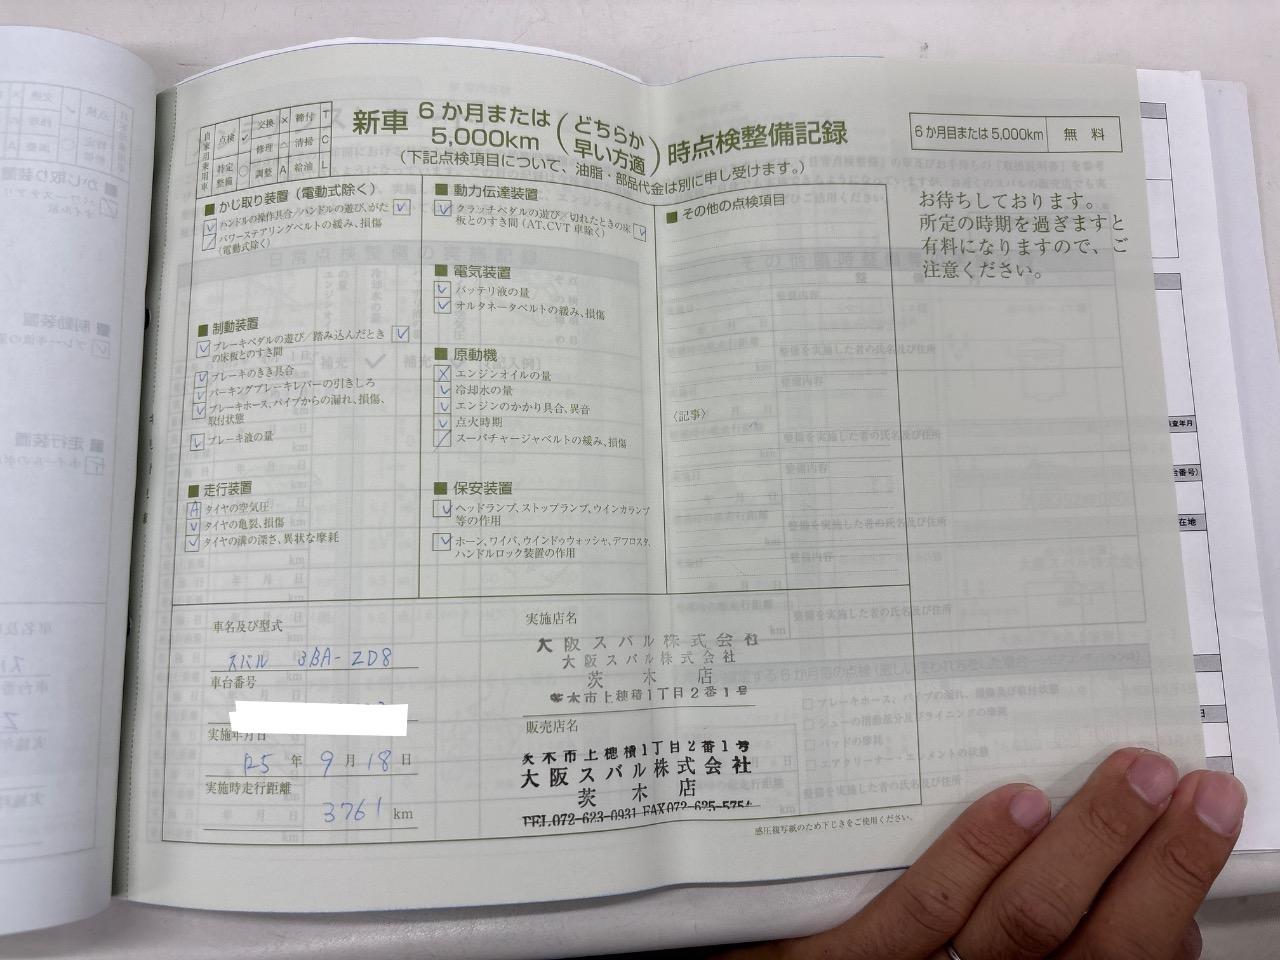 自家用乗用車
点検 ✓ 交換 × 締付 T
修理 △ 清掃 C
特定整備 ○ 調整 A 給油 L
新車 6か月または5,000km(どちらか早い方適)時点検整備記録
(下記点検項目について、油脂・部品代金は別に申し受けます。)
6か月目または5,000km 無料
お待ちしております。
所定の時期を過ぎますと
有料になりますので、ご
注意ください。
■ かじ取り装置(電動式除く)
ハンドルの操作具合/ハンドルの遊び、がた
パワーステアリングベルトの緩み、損傷
(電動式除く)
■ 制動装置
ブレーキペダルの遊び/踏み込んだとき
の床板とのすき間
ブレーキのきき具合
パーキングブレーキレバーの引きしろ
ブレーキホース、パイプからの漏れ、損傷、
取付状態
ブレーキ液の量
■ 走行装置
A タイヤの空気圧
タイヤの亀裂、損傷
タイヤの溝の深さ、異状な摩耗
■ 動力伝達装置
クラッチペダルの遊び/切れたときの床
板とのすき間(AT、CVT車除く)
■ 電気装置
バッテリ液の量
オルタネータベルトの緩み、損傷
■ 原動機
X エンジンオイルの量
冷却水の量
エンジンのかかり具合、異音
点火時期
スーパチャージャベルトの緩み、損傷
■ 保安装置
ヘッドランプ、ストップランプ、ウインカランプ
等の作用
ホーン、ワイパ、ウインドゥウォッシャ、デフロスタ、
ハンドルロック装置の作用
■ その他の点検項目
〈記事〉
車名及び型式
スバル 3BA-ZD8
車台番号
実施年月日
R5年 9月 18日
実施時走行距離
3761 km
実施店名
大阪スバル株式会社
大阪スバル株式会社
茨木店
茨木市上穂積1丁目2番1号
販売店名
茨木市上穂積1丁目2番1号
大阪スバル株式会社
茨木店
TEL072-623-0931 FAX072-625-5754
感圧複写紙のため下じきをご使用ください。